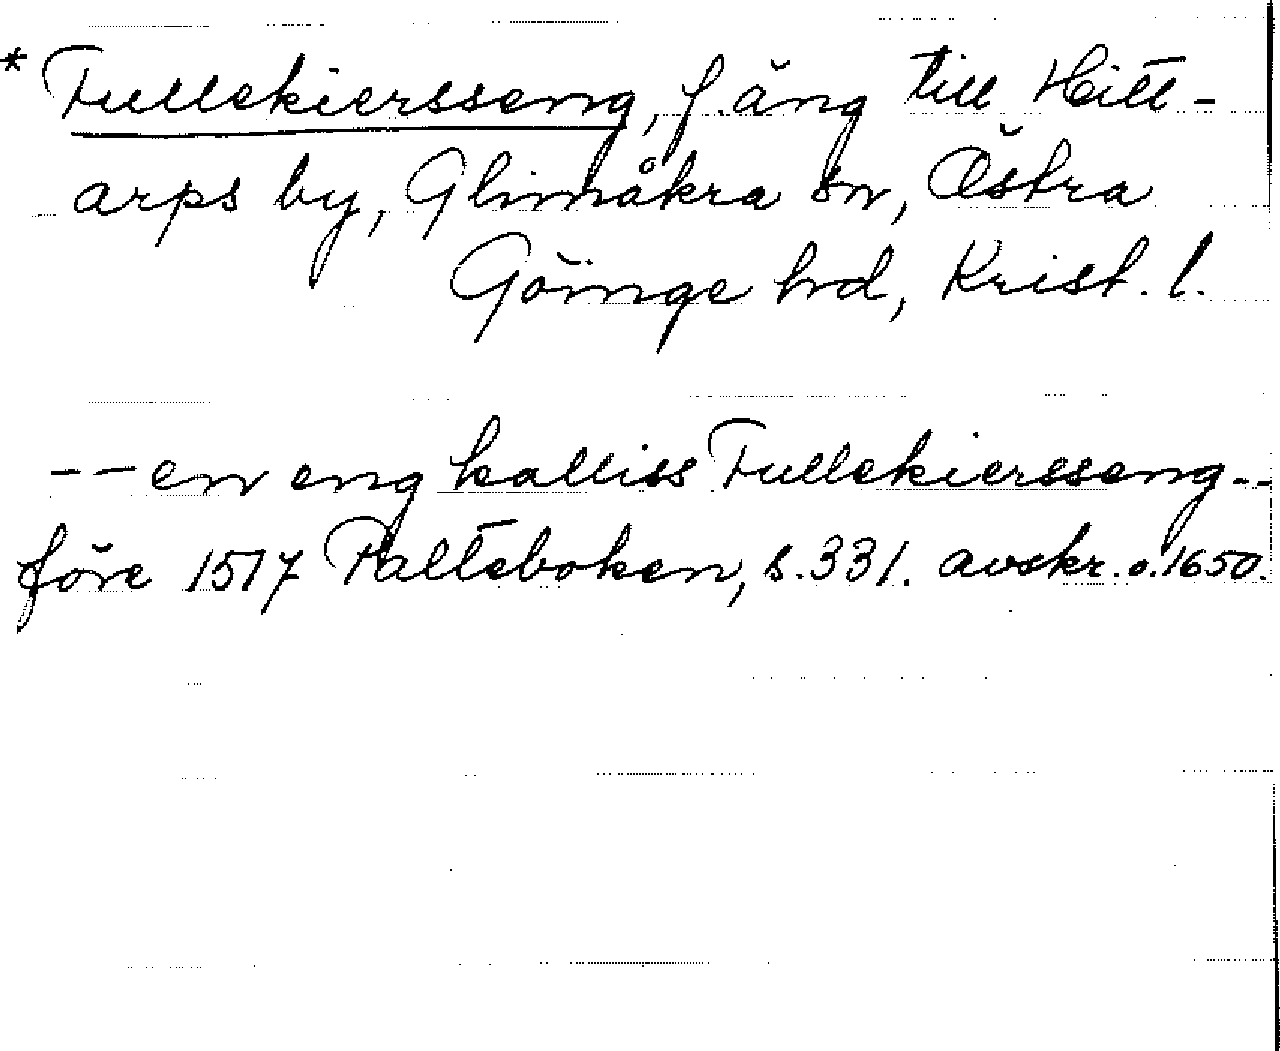 * Fullekiersseng, f. äng till Hitt-
arps by, Glimåkra sn, Östra
Göinge hd, Krist. l.
-- en eng kalliss Fullekiersseng --
före 1517 Palteboken, s. 331. avskr. o. 1650.